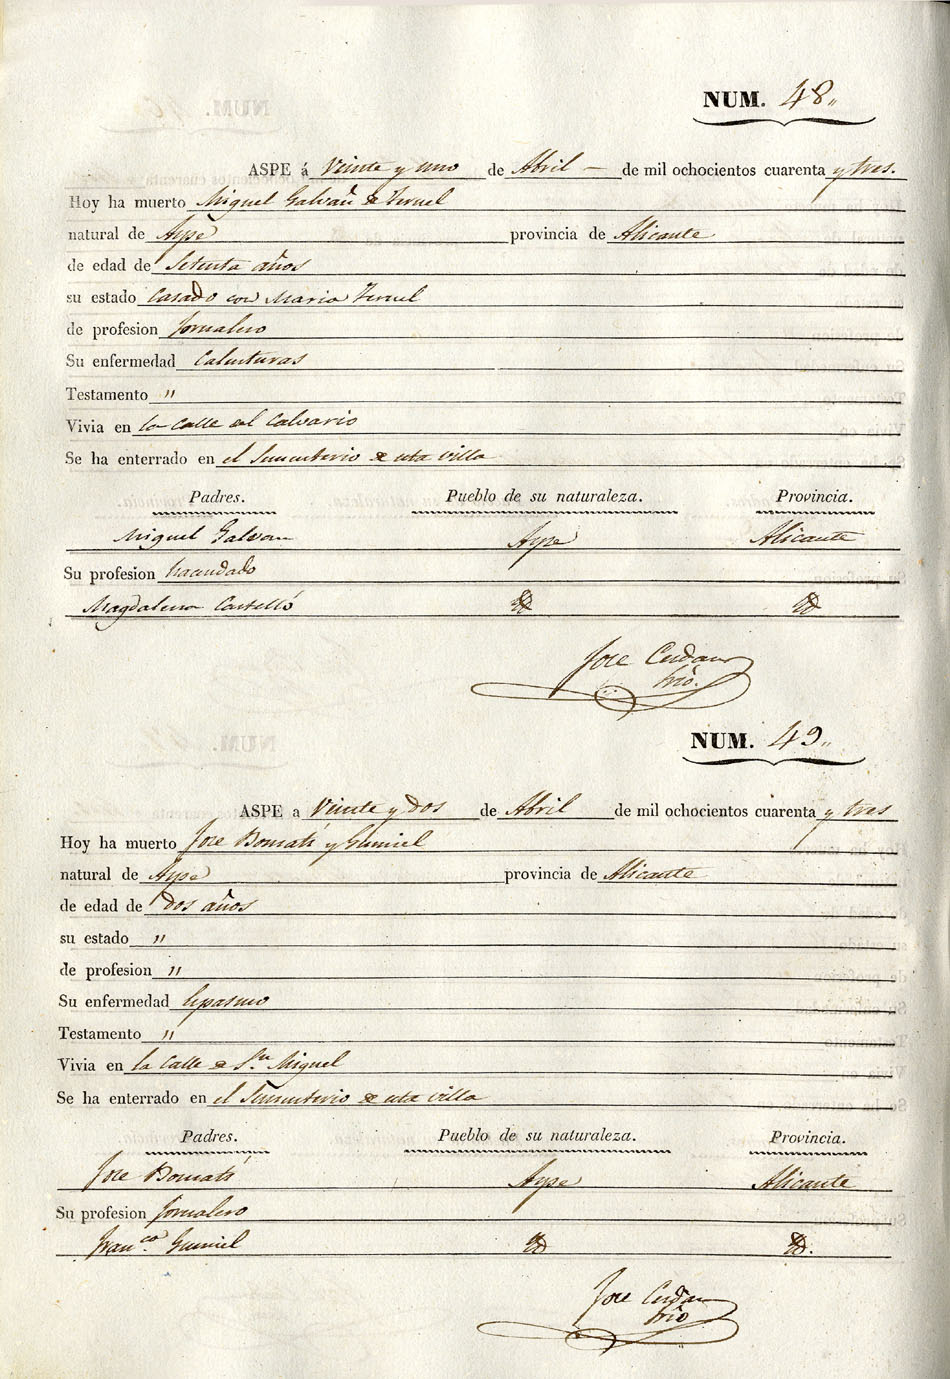 NUM. 48,,
ASPE á Veinte y uno de Abril — de mil ochocientos cuarenta y tres.
Hoy ha muerto Miguel Galvañ de Teruel
natural de Aspe provincia de Alicante
de edad de Setenta años
su estado Casado con Maria Teruel
de profesion Jornalero
Su enfermedad Calenturas
Testamento "
Vivia en la calle del Calvario
Se ha enterrado en el Sementerio de esta villa
Padres. Pueblo de su naturaleza. Provincia.
Miguel Galvan Aspe Alicante
Su profesion hacendado
Magdalena Castelló Id Id
Jose Cerdan
Srio.
NUM. 49,,
ASPE a Veinte y dos de Abril de mil ochocientos cuarenta y tres
Hoy ha muerto Jose Bomati y Gumiel
natural de Aspe provincia de Alicante
de edad de dos años
su estado "
de profesion "
Su enfermedad Espasmo
Testamento "
Vivia en la Calle de Sn. Miguel
Se ha enterrado en el Sementerio de esta villa
Padres. Pueblo de su naturaleza. Provincia.
Jose Bomati Aspe Alicante
Su profesion Jornalero
Franco. Gumiel Id Id.
Jose Cerdan
Srio